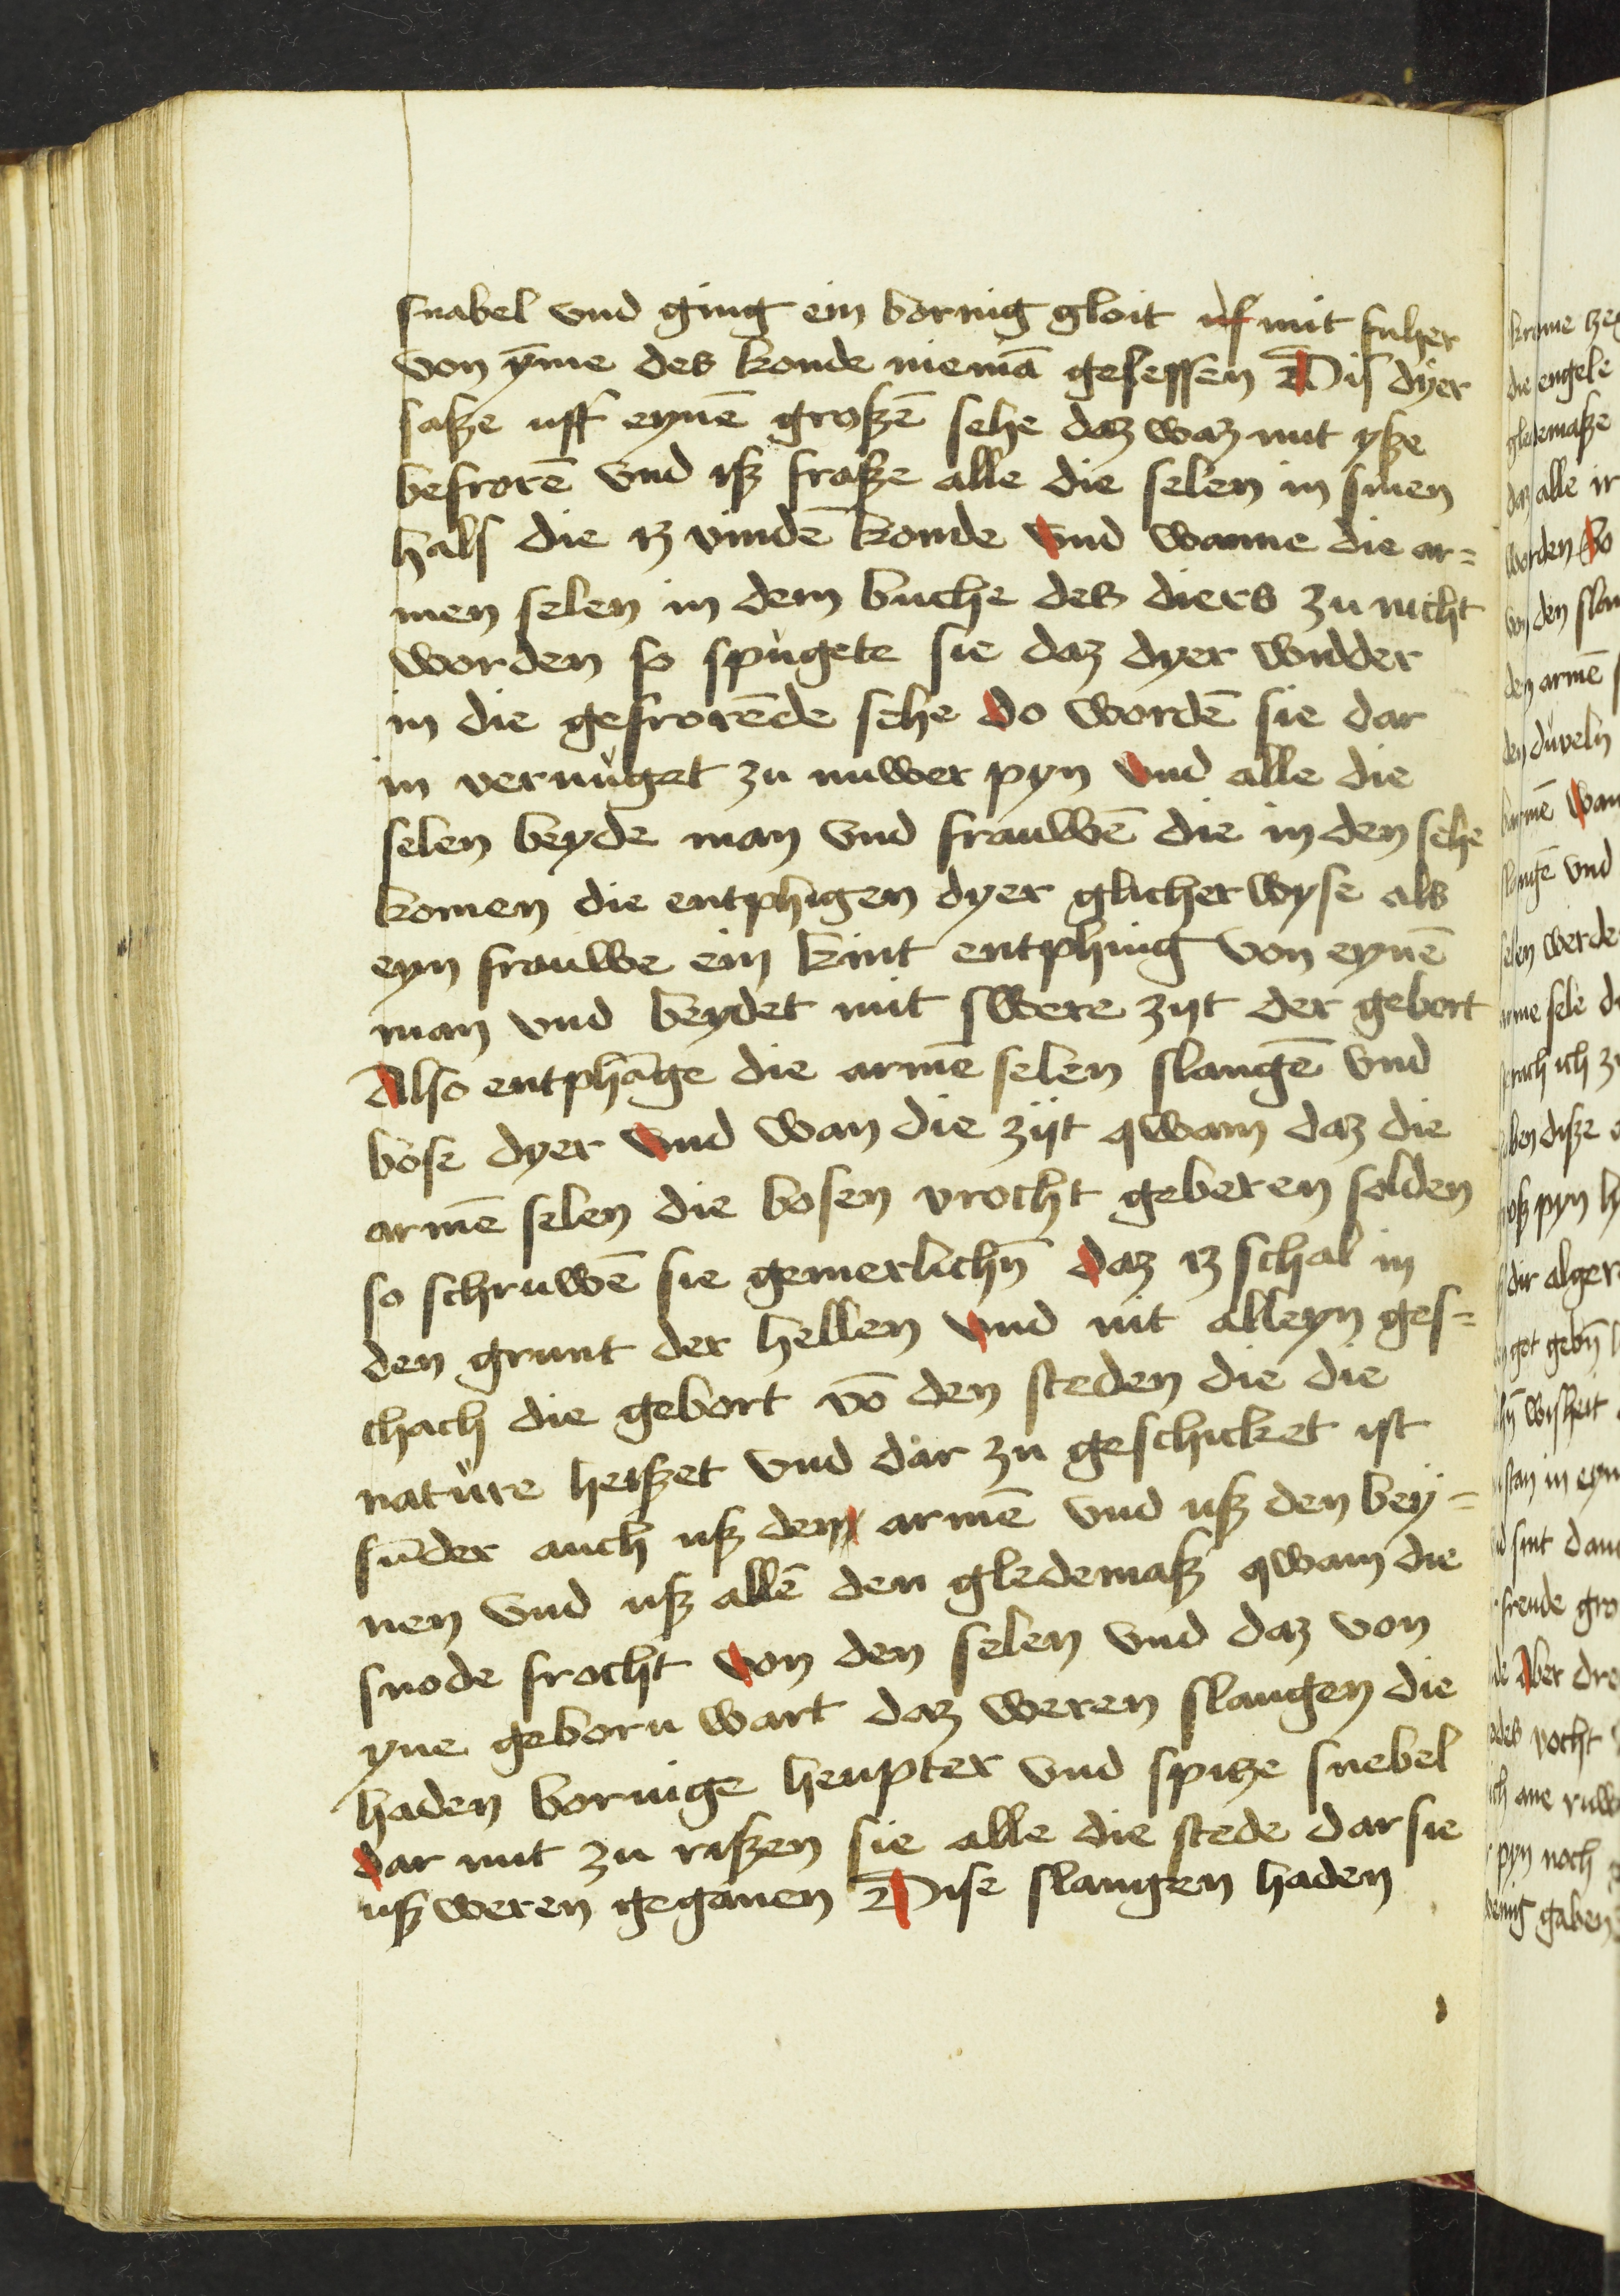 snabel vnd ging ein bornig gloit uſ mit fuher
von ȳme des konde niemā geleſſen Diſ dyer
ſaſze uff eynē groſzē ſehe daz waz mit yſze
befrorē vnd iſz fraſze alle die ſelen in ſinen
halſ die iz vindē konde vnd wanne die ar=
men ſelen in dem buche des diers zu nicht
worden ſo ſpùgete ſie daz dyer widder
in die gefrorēde ſehe do wordē ſie dar
in vernùget zu nuwer pyn vnd alle die
ſelen beyde man vnd frauwē die in den ſehe
komen die entphigen dyer glicher wyſe als
eyn frauwe ein kint entphing von eynē
man vnd beydet mit ſwere zijt der gebort
Alſo entphāge die armē ſelen ſlangē vnd
boſe dyer vnd wan die zijt qwam daz die
armē ſelen die boſen vrocht geberen ſolden
ſo ſchruwē ſie gemerlichn̄ daz iz ſchal in
den grunt der hellen vnd nit alleyn geſ=
chach die gebort vō den ſteden die die
natùre heiſzet vnd dar zu geſchicket iſt
ſūder auch uſz den armē vnd uſz den bey=
nen vnd uſz allē den gledemaſz qwam die
ſnode frocht von den ſelen vnd daz von
yne geborn wart daz weren ſlangen die
haden bornige heupter vnd ſpitze ſnebel
dar mit zu riſzen ſie alle die ſtede dar ſie
uſz weren geganen Diſe ſlangen haden
die engele
gledemaſze
daz alle ir
worden So
von den ſlan
den armē
den dùveln